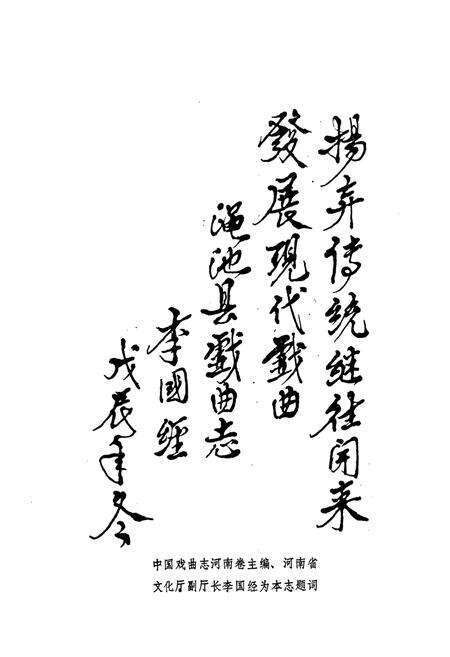 揚弃传统继往开来
發展現代戲曲
渑池县戲曲志
李國經
戊辰年冬
中国戏曲志河南卷主编、河南省
文化厅副厅长李国经为本志题词